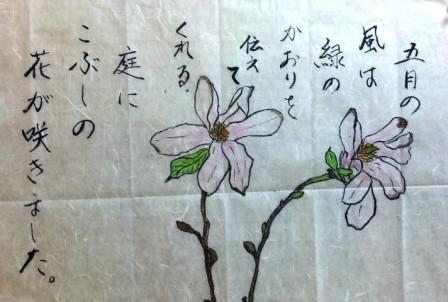 五月の
風は
緑の
かおりを
伝えて
くれる。
庭に
こぶしの
花が咲きました。